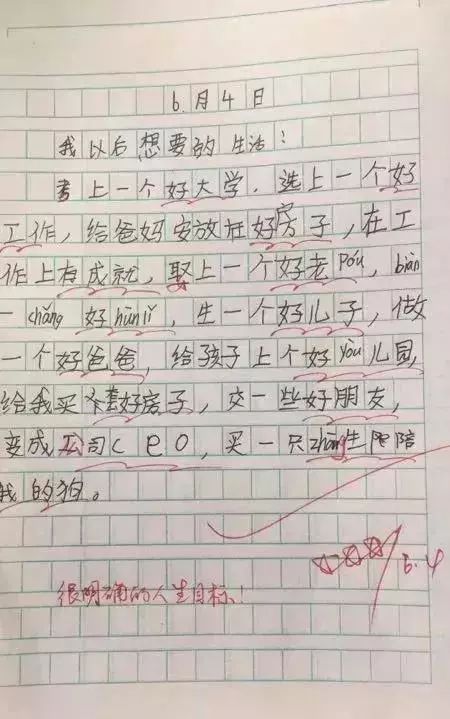 6月4日
我以后想要的生活：
考上一个好大学，选上一个好
工作，给爸妈安放在好房子，在工
作上有成就，娶上一个好老pó，bàn
一chǎng好hūnlǐ，生一个好儿子，做
一个好爸爸，给孩子上个好yòu儿园，
给我买套好房子，交一些好朋友，
变成公司CeO，买一只zhōng生陪
我的狗。
6.4
很明确的人生目标！